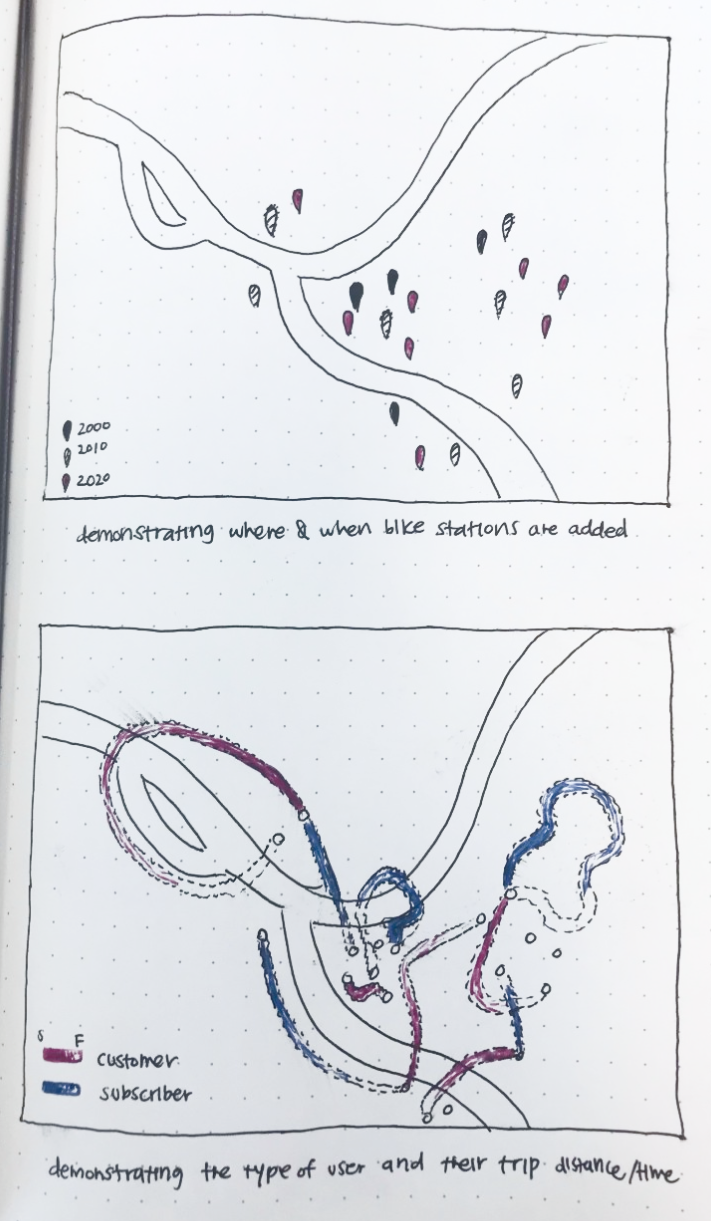 2000
2010
2020
demonstrating where & when bike stations are added
S F
customer
subscriber
demonstrating the type of user and their trip distance/time